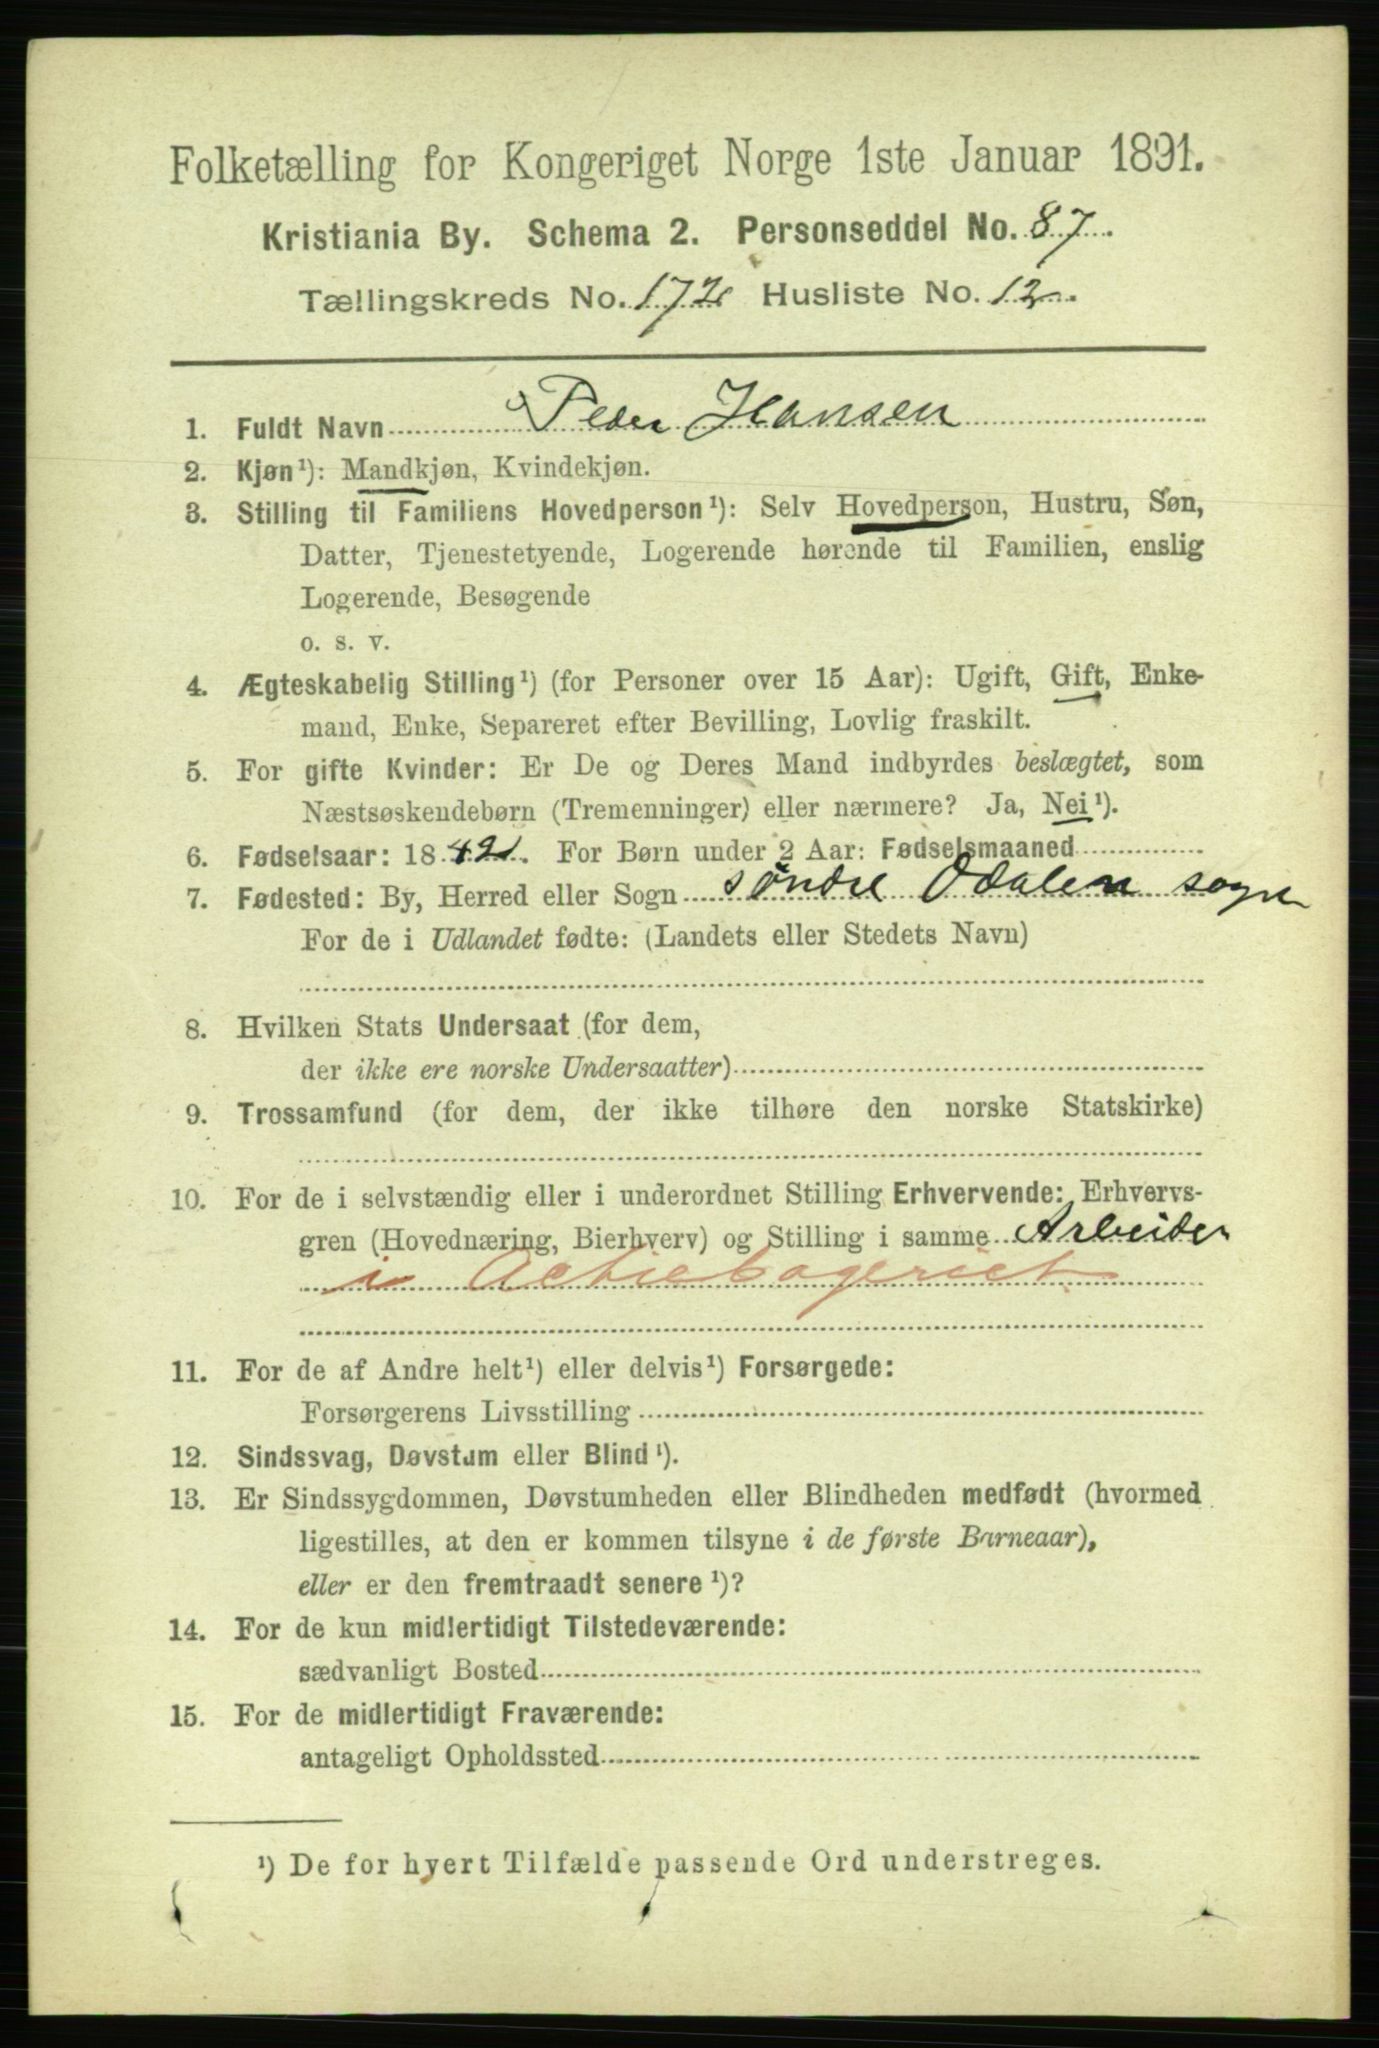 Folketælling for Kongeriget Norge 1ste Januar 1891.
Kristiania By. Schema 2. Personseddel No. 87.
Tællingskreds No. 172 Husliste No. 12.
1. Fuldt Navn Peder Hansen
2. Kjøn¹): Mandkjøn, Kvindekjøn.
3. Stilling til Familiens Hovedperson¹): Selv Hovedperson, Hustru, Søn,
Datter, Tjenestetyende, Logerende hørende til Familien, enslig
Logerende, Besøgende
o. s. v.
4. Ægteskabelig Stilling¹) (for Personer over 15 Aar): Ugift, Gift, Enke-
mand, Enke, Separeret efter Bevilling, Lovlig fraskilt.
5. For gifte Kvinder: Er De og Deres Mand indbyrdes beslægtet, som
Næstsøskendebørn (Tremenninger) eller nærmere? Ja, Nei¹).
6. Fødselsaar: 1842. For Børn under 2 Aar: Fødselsmaaned
7. Fødested: By, Herred eller Sogn søndre Odalen sogn
For de i Udlandet fødte: (Landets eller Stedets Navn)
8. Hvilken Stats Undersaat (for dem,
der ikke ere norske Undersaatter)
9. Trossamfund (for dem, der ikke tilhøre den norske Statskirke)
10. For de i selvstændig eller i underordnet Stilling Erhvervende: Erhvervs-
gren (Hovednæring, Bierhverv) og Stilling i samme Arbeider
i Actiebageriet
11. For de af Andre helt¹) eller delvis¹) Forsørgede:
Forsørgerens Livsstilling
12. Sindssvag, Døvstum eller Blind¹).
13. Er Sindssygdommen, Døvstumheden eller Blindheden medfødt (hvormed
ligestilles, at den er kommen tilsyne i de første Barneaar),
eller er den fremtraadt senere¹)?
14. For de kun midlertidigt Tilstedeværende:
sædvanligt Bosted
15. For de midlertidigt Fraværende:
antageligt Opholdssted
¹) De for hvert Tilfælde passende Ord understreges.